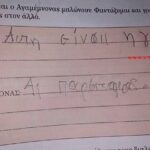 αι ο Αγαμέμνονας μαλώνουν. Φαντάζομαι και γρ
ς στον άλλο.
Αυτη είναι η γ
ΟΝΑΣ
Αι